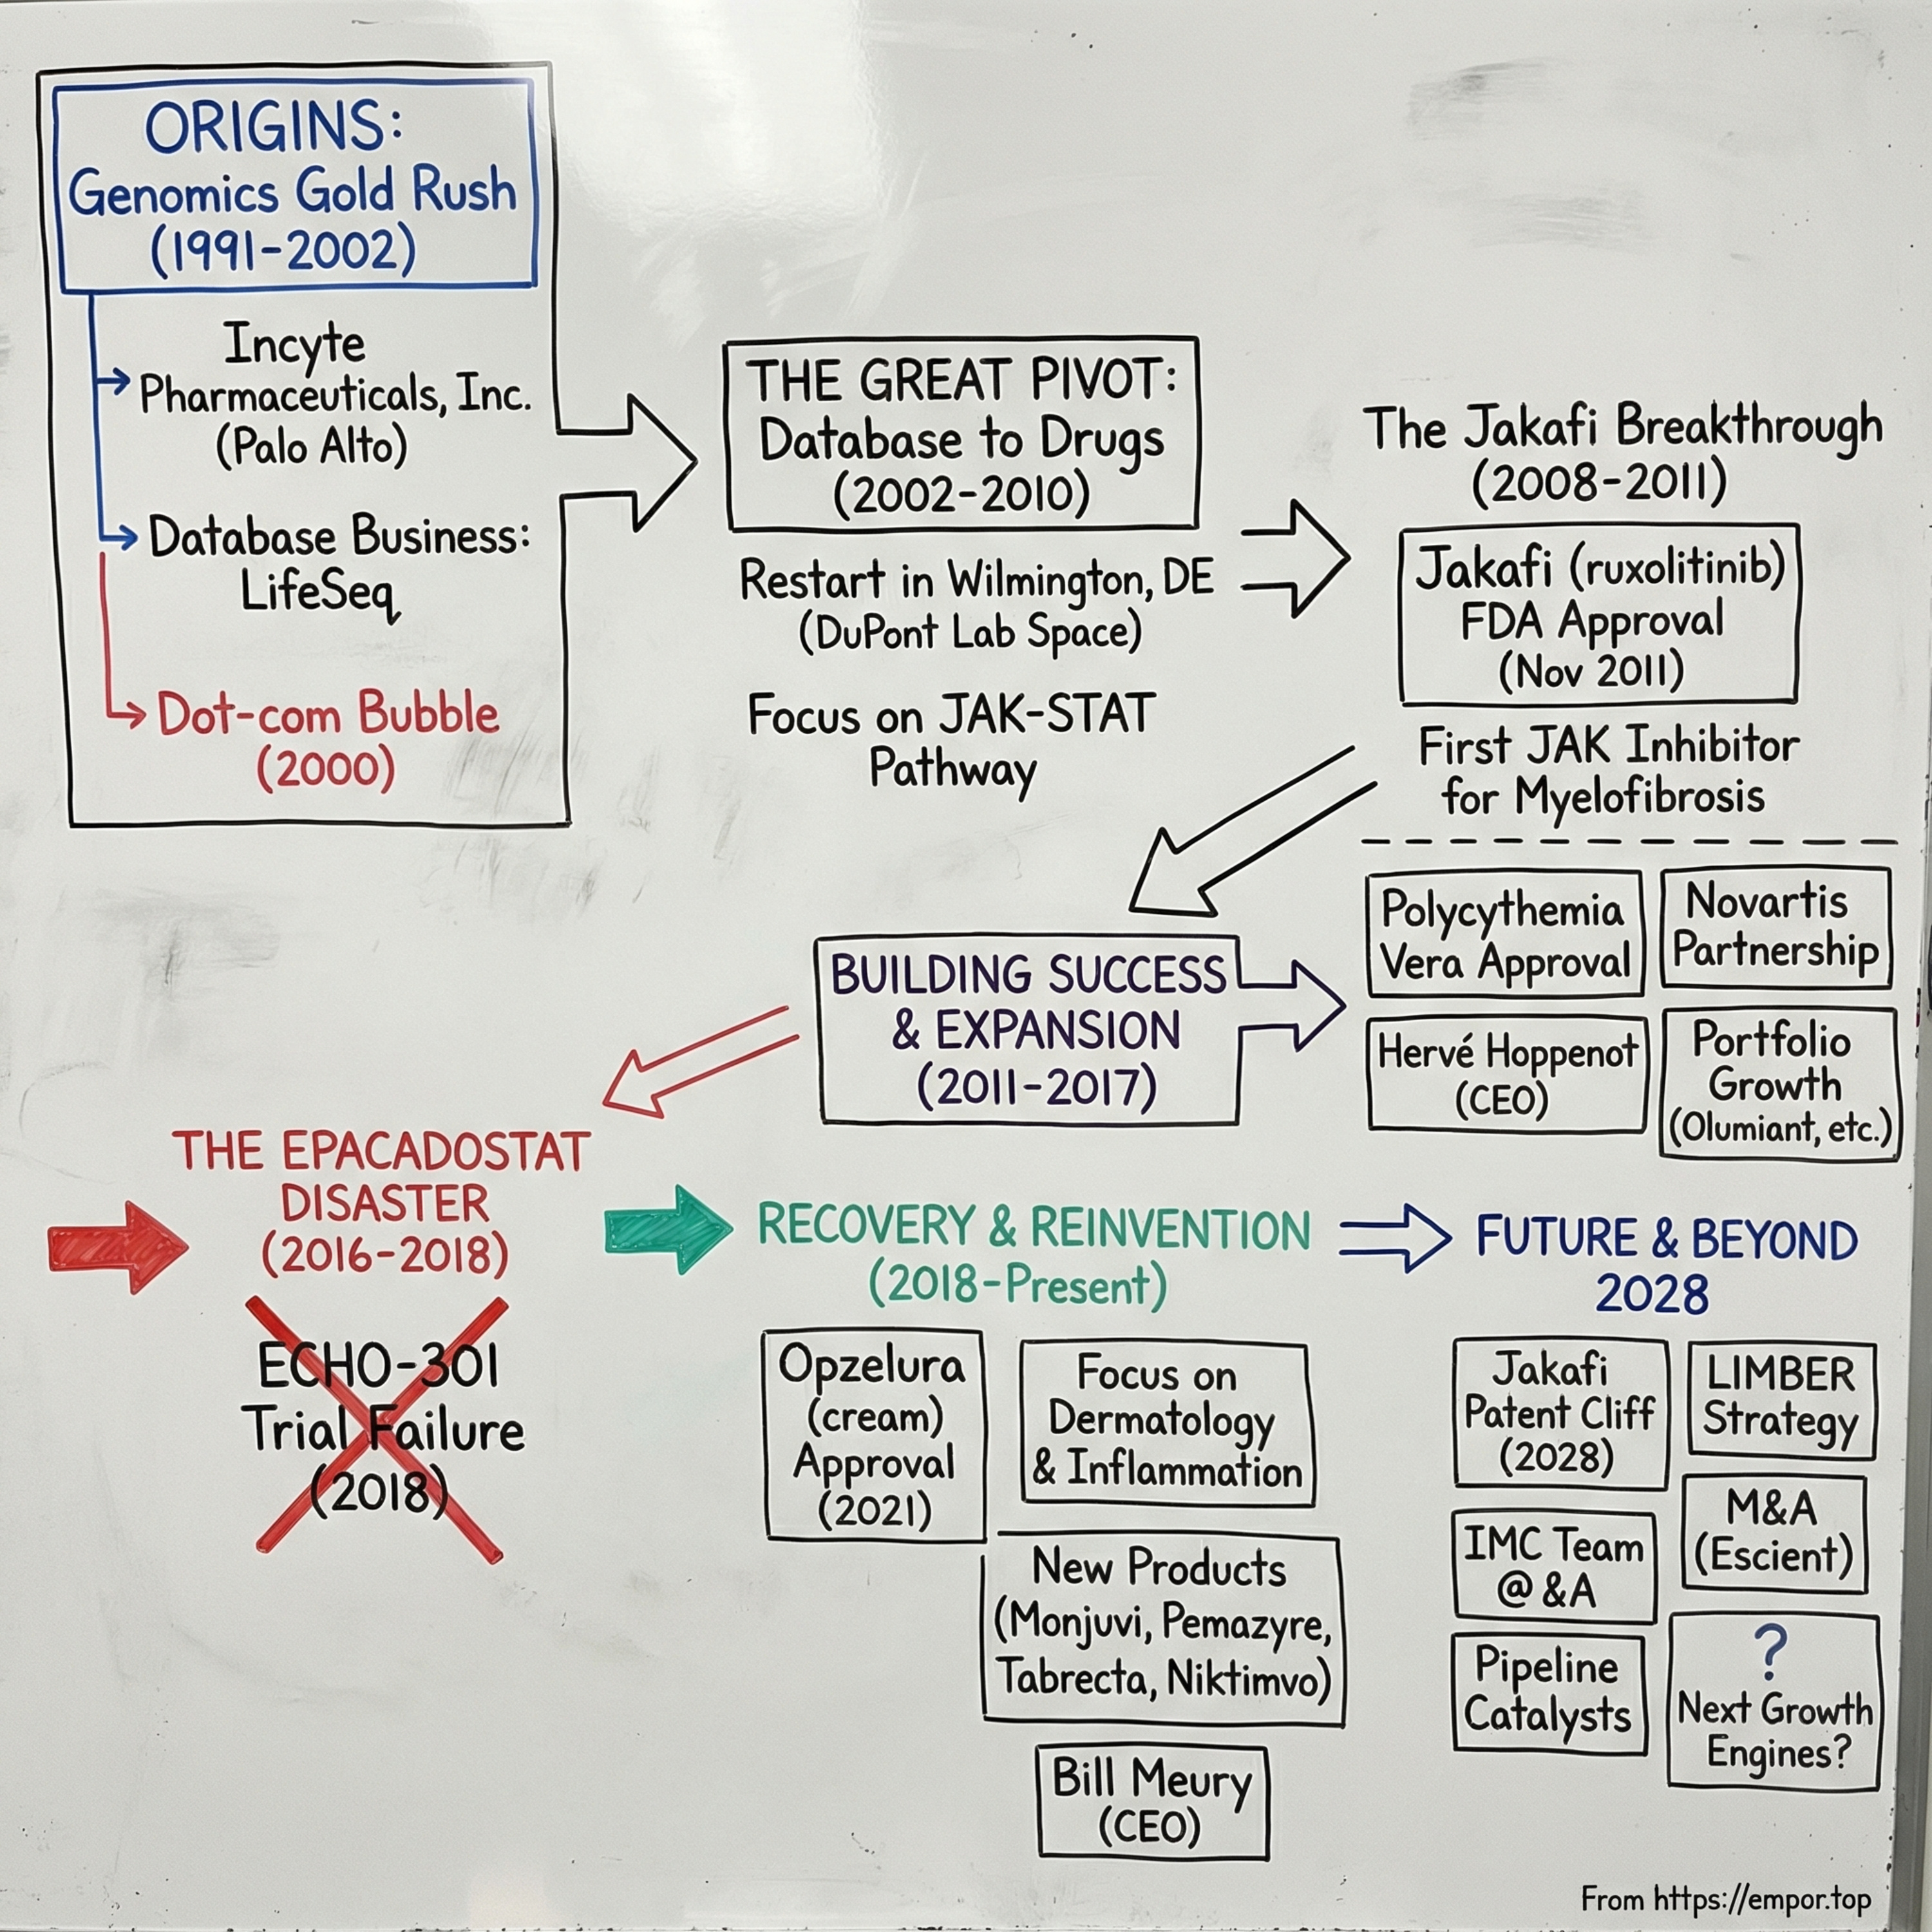 ORIGINS:
Genomics Gold Rush
(1991-2002)
Incyte
Pharmaceuticals, Inc.
(Palo Alto)
Database Business:
LifeSeq
Dot-com Bubble
(2000)
THE GREAT PIVOT:
Database to Drugs
(2002-2010)
Restart in Wilmington, DE
(DuPont Lab Space)
Focus on JAK-STAT
Pathway
The Jakafi Breakthrough
(2008-2011)
Jakafi (ruxolitinib)
FDA Approval
(Nov 2011)
First JAK Inhibitor
for Myelofibrosis
BUILDING SUCCESS
& EXPANSION
(2011-2017)
Polycythemia
Vera Approval
Novartis
Partnership
Hervé Hoppenot
(CEO)
Portfolio
Growth
(Olumiant, etc.)
THE EPACADOSTAT
DISASTER
(2016-2018)
ECHO-301
Trial Failure
(2018)
RECOVERY & REINVENTION
(2018-Present)
Opzelura
(cream)
Approval
(2021)
Focus on
Dermatology
& Inflammation
New Products
(Monjuvi, Pemazyre,
Tabrecta, Niktimvo)
Bill Meury
(CEO)
FUTURE & BEYOND
2028
Jakafi
Patent Cliff
(2028)
LIMBER
Strategy
IMC Team
@ &A
M&A
(Escient)
Pipeline
Catalysts
?
Next Growth
Engines?
From https://empor.top